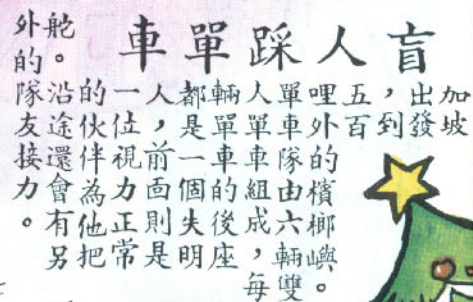 盲人踩單車
加坡
出發
，到
五百
哩外的檳榔嶼。
單車隊由六輛雙
人單車組成，每
輛單車的後座
都是一個失明
人，前面則是
一位視力正常
的伙伴為他把
舵。沿途還會有另
外的隊友接力。